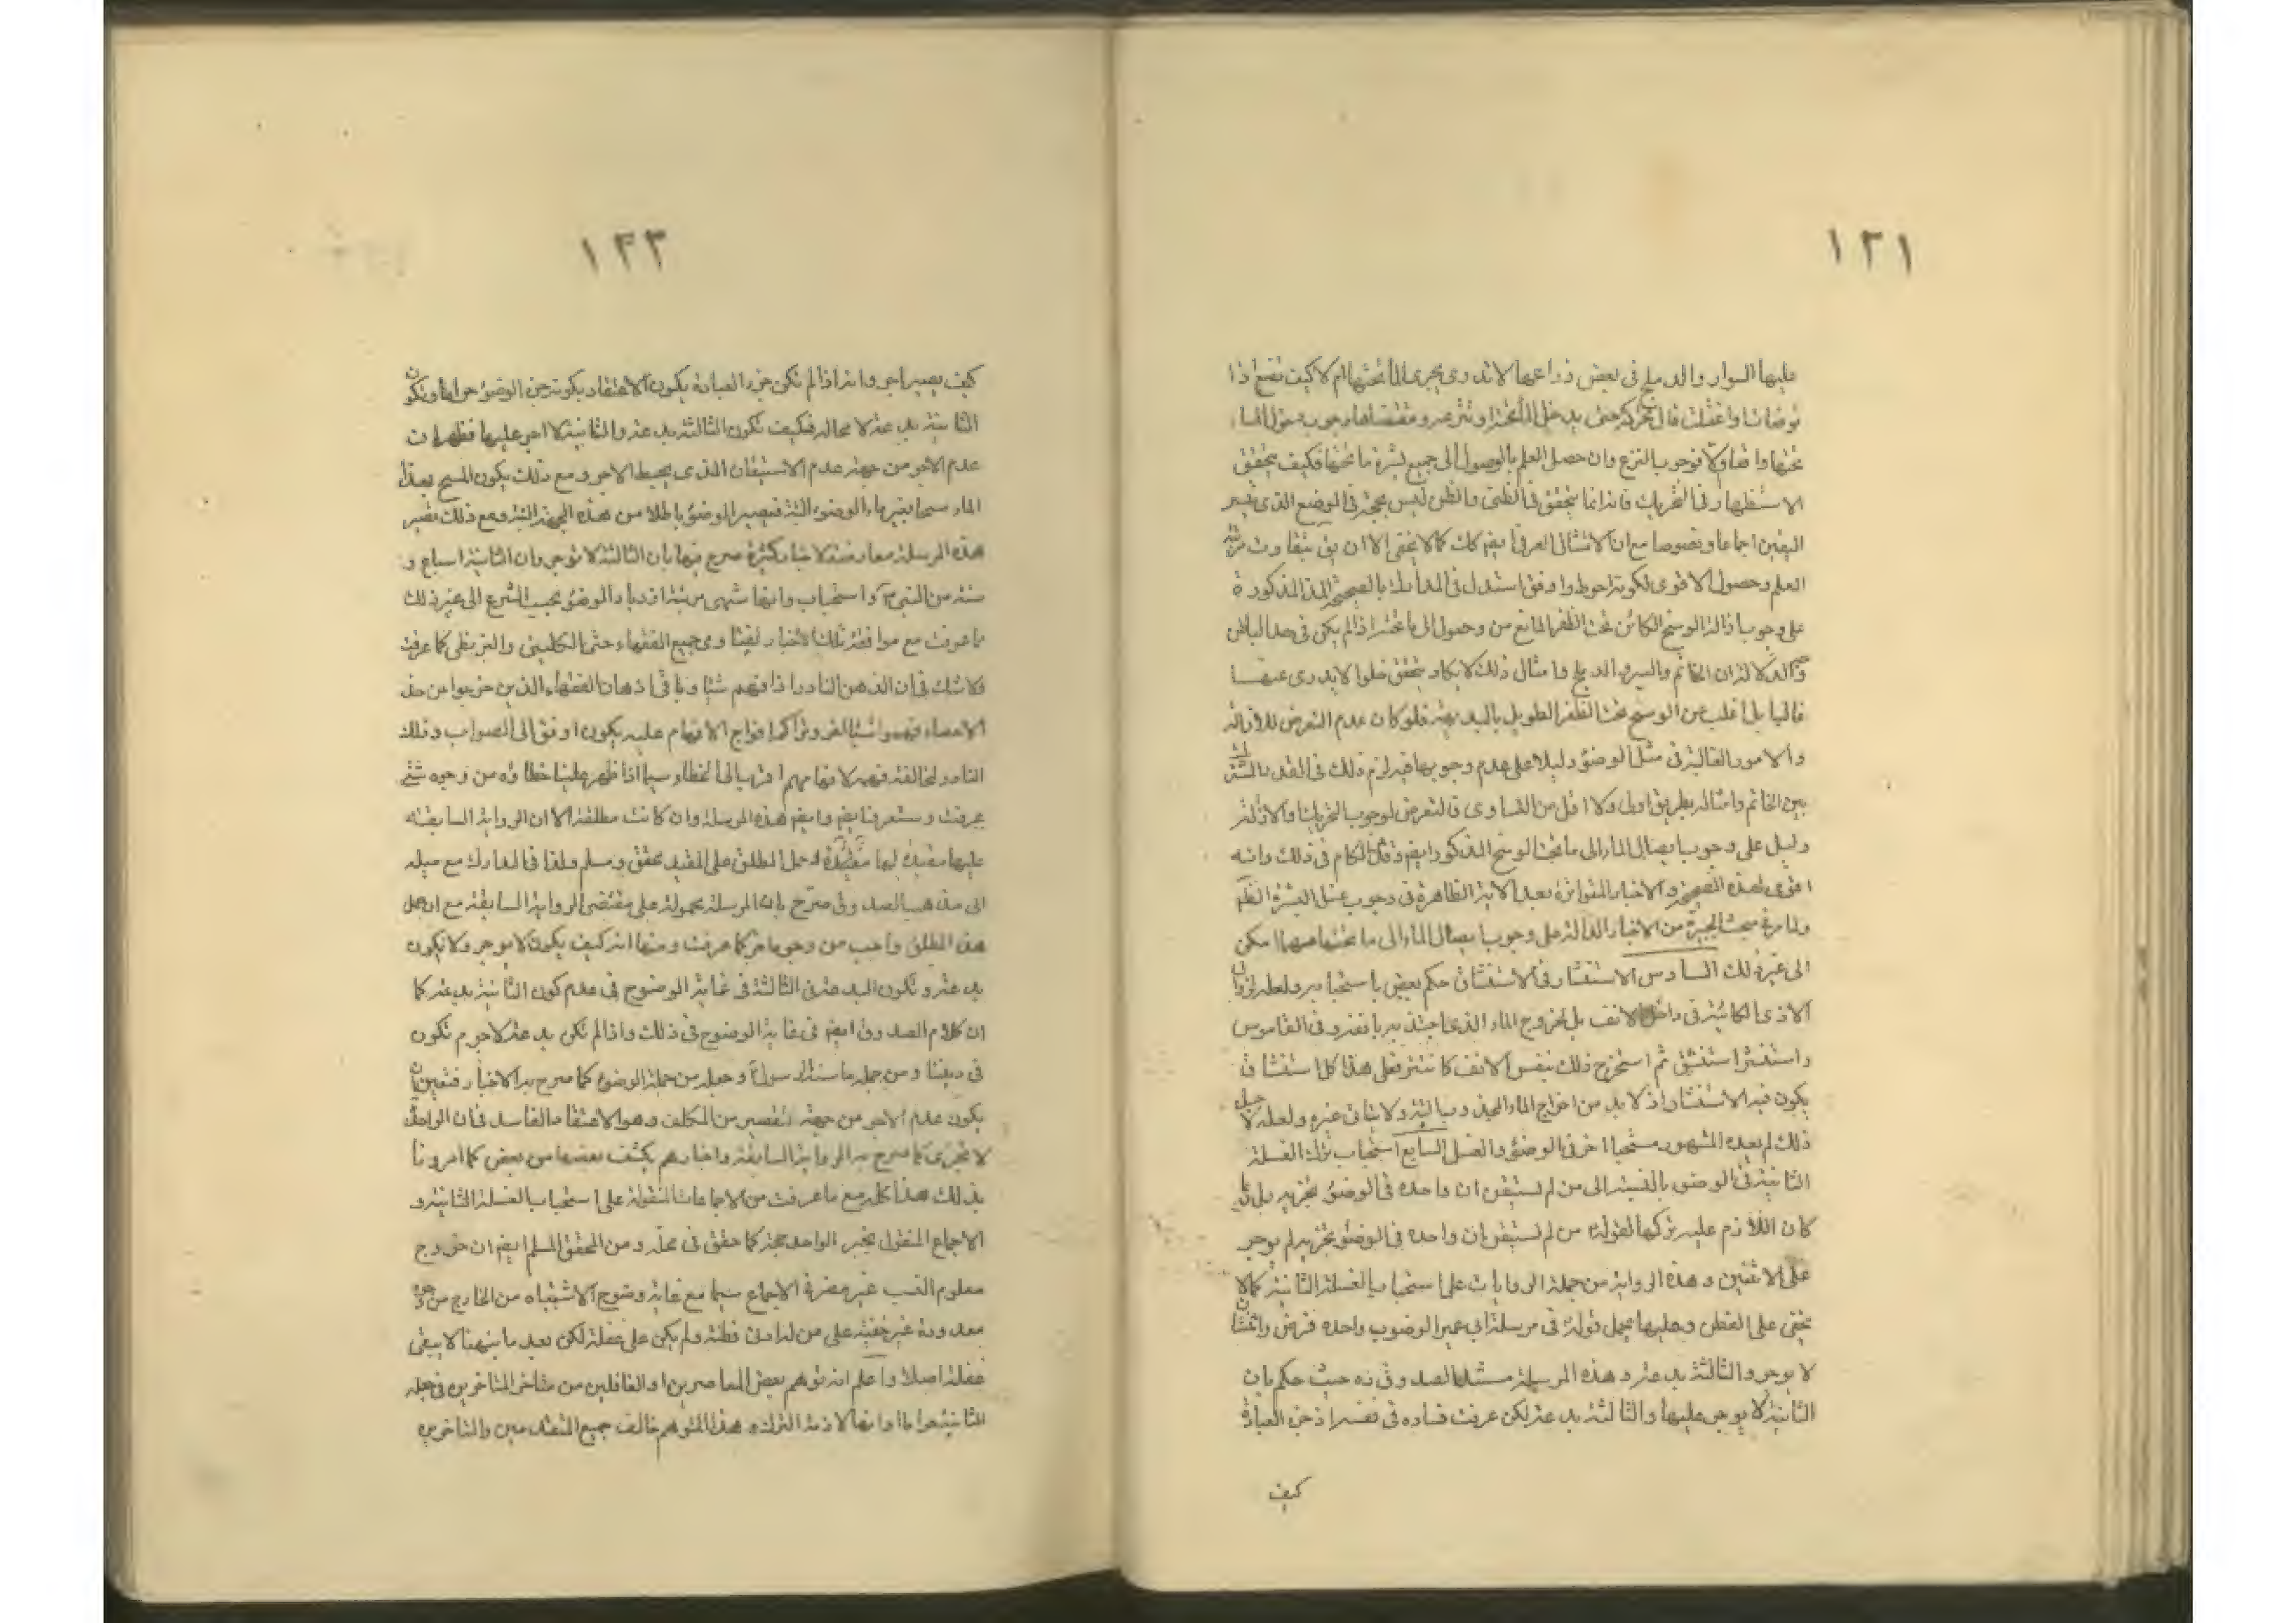 ١٢١
عليها السوار والدملج فى بعض ذراعها لا تدرى يجرى الماء تحتها ام لا كيف تصنع اذا
توضات او اغتسلت قال تحركه حتى يدخل الماء تحته او تنزعه ومقتضاها وجوب دخول الماء
تحتها واقعا والا فوجوب النزع وان حصل العلم بالوصول الى جميع بشرة ما تحتها فكيف يتحقق
الاستظهار فى التحريك فانه انما يتحقق فى الظنى والظن ليس بحجة فى الموضع الذى يعتبر
اليقين اجماعا ونصوصا مع ان الامتثال العرفى ايضا كك كما لا يخفى الا ان يق بتفاوت مرتبة
العلم وحصول الاقوى لكونه احوط واوفق استدل فى المدارك بالصحيحة المذكورة
على وجوب ازالة الوسخ الكائن تحت الظفر المانع من وصول الماء الى ما تحته اذا لم يكن فى حد الباطن
الدلالة ان الخاتم والسير والدملج وامثال ذلك لا يكاد يتحقق خلوا لا يدرى عنها
غالبا بل اغلب من الوسخ تحت الظفر الطويل بالبديهة فلو كان عدم التعرض للازالة
والامور الغالبة فى مثل الوضوء دليلا على عدم وجوبها فيلزم ذلك فى القدر المشترك
بين الخاتم وامثاله بطريق اولى ولا اقل من التساوى فالتعرض لوجوب التحريك والازالة
دليل على وجوب ايصال الماء الى ما تحت الوسخ المذكور ايضا وقد مر الكلام فى ذلك وانه
اقوى لهذه الصحيحة والاخبار المتواترة بعد الاية الظاهرة فى وجوب غسل البشرة
ولما مر فى مبحث الجبيرة من الاخبار الدالة على وجوب ايصال الماء الى ما تحتها مهما امكن
الى غير ذلك السادس الاستنثار فى الاستنشاق حكم بعض باستحبابه ولعله لزوال
الاذى الكائنة فى داخل الانف بل لخروج الماء الذى اجتذبه بانفه وفى القاموس
واستنثر استنشق ثم استخرج ذلك بنفس الانف كانتثر فعلى هذا كل استنشاق
يكون فيه الاستنثار اذ لا بد من اخراج الماء المجذوب البتة ولا يتاتى غيره ولعله لا جل
ذلك لم يعده المشهور مستحبا اخر فى الوضوء والغسل السابع استحباب ترك الغسلة
الثانية فى الوضوء بالنسبة الى من لم يستيقن ان واحدة فى الوضوء تجزيه بل
كان اللازم عليه تركها لقوله من لم يستيقن ان واحدة فى الوضوء تجزيه لم يوجر
على الاثنتين وهذه الرواية من جملة الروايات على استحباب الغسلة الثانية كما لا
يخفى على الفطن وعليها يحمل قوله فى مرسلة ابى عمير الوضوء واحدة فرض واثنتان
لا يوجر والثالثة بدعة وهذه المرسلة مستند الصدوق ره حيث حكم بان
الثانية لا يوجر عليها والثالثة بدعة لكن عرفت فساده فى نفسه اذ جزء العبادة
كيف
١٢٢
كيف يصير اجر وانه اذا لم تكن جزء العبادة يكون الاعتقاد بكونه جزء الوضوء حراما وتكون
الثانية بدعة لا محالة فكيف تكون الثالثة بدعة والثانية لا اجر عليها فظهر ان
عدم الاجر من جهة عدم الاستيقان الذى يحبط الاجر ومع ذلك يكون المسح بهذا
الماء مسحا بغير ماء الوضوء البتة فيصير الوضوء باطلا من هذه الجهة البتة ومع ذلك تصير
هذه المرسلة معارضة لاخبار كثيرة صرح فيها بان الثالثة لا توجر وان الثانية اسباغ و
سنة من النبى واستحباب وانها منتهى مرتبة ازدياد الوضوء بحسب الشرع الى غير ذلك
مما عرفت مع موافقة تلك الاخبار لفتاوى جميع الفقهاء حتى الكلينى والبزنطى كما عرفت
ولا شك فى ان الذهن النادر اذا فهم شيئا وباقى اذهان الفقهاء الذين خرجوا عن حد
الاحصاء فهموا شيئا اخر وتراكم افواج الافهام عليه يكون اوفق الى الصواب وذلك
النادر لمخالفة فهمه لافهامهم اقرب الى الخطاء سيما اذا ظهر علينا خطاؤه من وجوه شتى
عرفت وستعرفها ايضا وايضا هذه المرسلة وان كانت مطلقة الا ان الرواية السابقة
عليها مقيدة لها وحمل المطلق على المقيد محقق ومسلم ولذا فى المدارك مع ميله
الى مذهب الصدوق صرح بان المرسلة محمولة على مقتضى الرواية السابقة مع ان حمل
هذا المطلق واجب من وجوه اخر كما عرفت ومنها انه كيف يكون لا يوجر ولا يكون
بدعة وتكون البدعة فى الثالثة فى غاية الوضوح فى عدم كون الثانية بدعة كما
ان كلام الصدوق ايضا فى غاية الوضوح فى ذلك واذا لم تكن بدعة لا جرم تكون
فى ديننا ومن جملة ما سنه الرسول وجعله من جملة الوضوء كما صرح به الاخبار فتعين ان
يكون عدم الاجر من جهة تقصير من المكلف وهو الاعتقاد الفاسد فى ان الواحدة
لا تجزى كما صرح به الرواية السابقة واخبارهم يكشف بعضها من بعض كما امرونا
بذلك هذا كله مع ما عرفت من الاجماعات المنقولة على استحباب الغسلة الثانية و
الاجماع المنقول بخبر الواحد حجة كما حقق فى محله ومن المحقق المسلم ايضا ان خروج
معلوم النسب غير مضر فى الاجماع سيما مع غاية وضوح الاشتباه من الخارج من وجوه
معدودة غير خفية على من له ادنى فطنة ولم يكن على غفلة لكن بعد ما نبهنا لا يبقى
غفلة اصلا واعلم انه توهم بعض المعاصرين او الغافلين من متاخر المتاخرين فى جعله
الثانية حراما وانها لازمة الترك وهذا المتوهم خالف جميع المتقدمين والمتاخرين